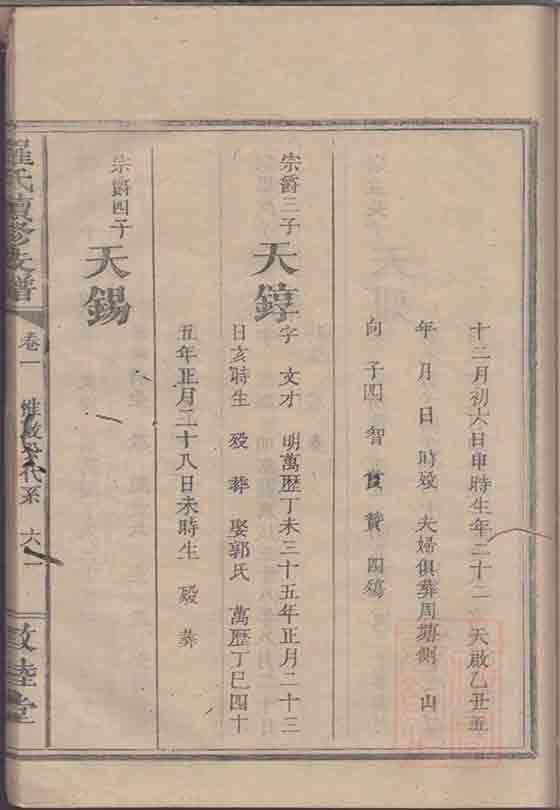 十二月初六日申時生年二十二　天啟乙丑五
年　月　日　時殁　夫婦俱葬周塘側　山
向　子四　智　賢　贊　四殤
宗爵三子　天錞　字　文才　明萬歷丁未三十五年正月二十三
日亥時生　殁　葬　娶郭氏　萬歷丁巳四十
五年正月二十八日未時生　殁　葬
宗爵四子　天錫
羅氏續修支譜　卷一　惟敬公代系　六一　敦睦堂